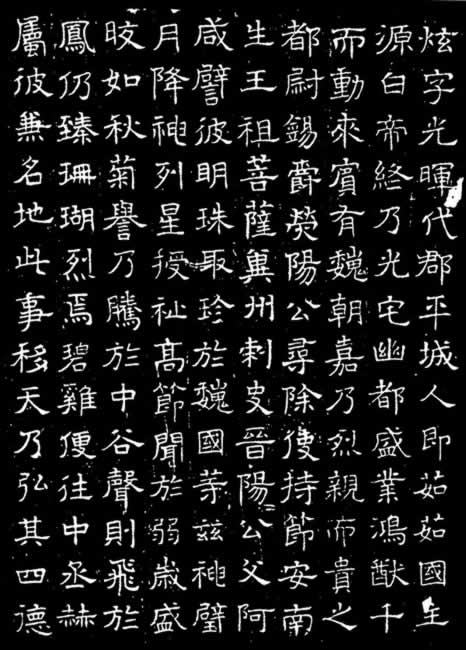 炫字光暉代郡平城人即茹茹國主
源白帝終乃光宅幽都盛業鴻猷千
而動來賓有魏朝嘉乃烈親而貴之
都尉錫爵熒陽公尋除使持節安南
生王祖菩薩冀州刺史晉陽公父阿
咸譬彼明珠取珍於魏國等茲神璧
月降神列星授祉高節聞於弱歲盛
晈如秋菊譽乃騰於中谷聲則飛於
鳳仍臻珊瑚烈焉碧雞便往中丞赫
屬彼兼名地此事移天乃弘其四德